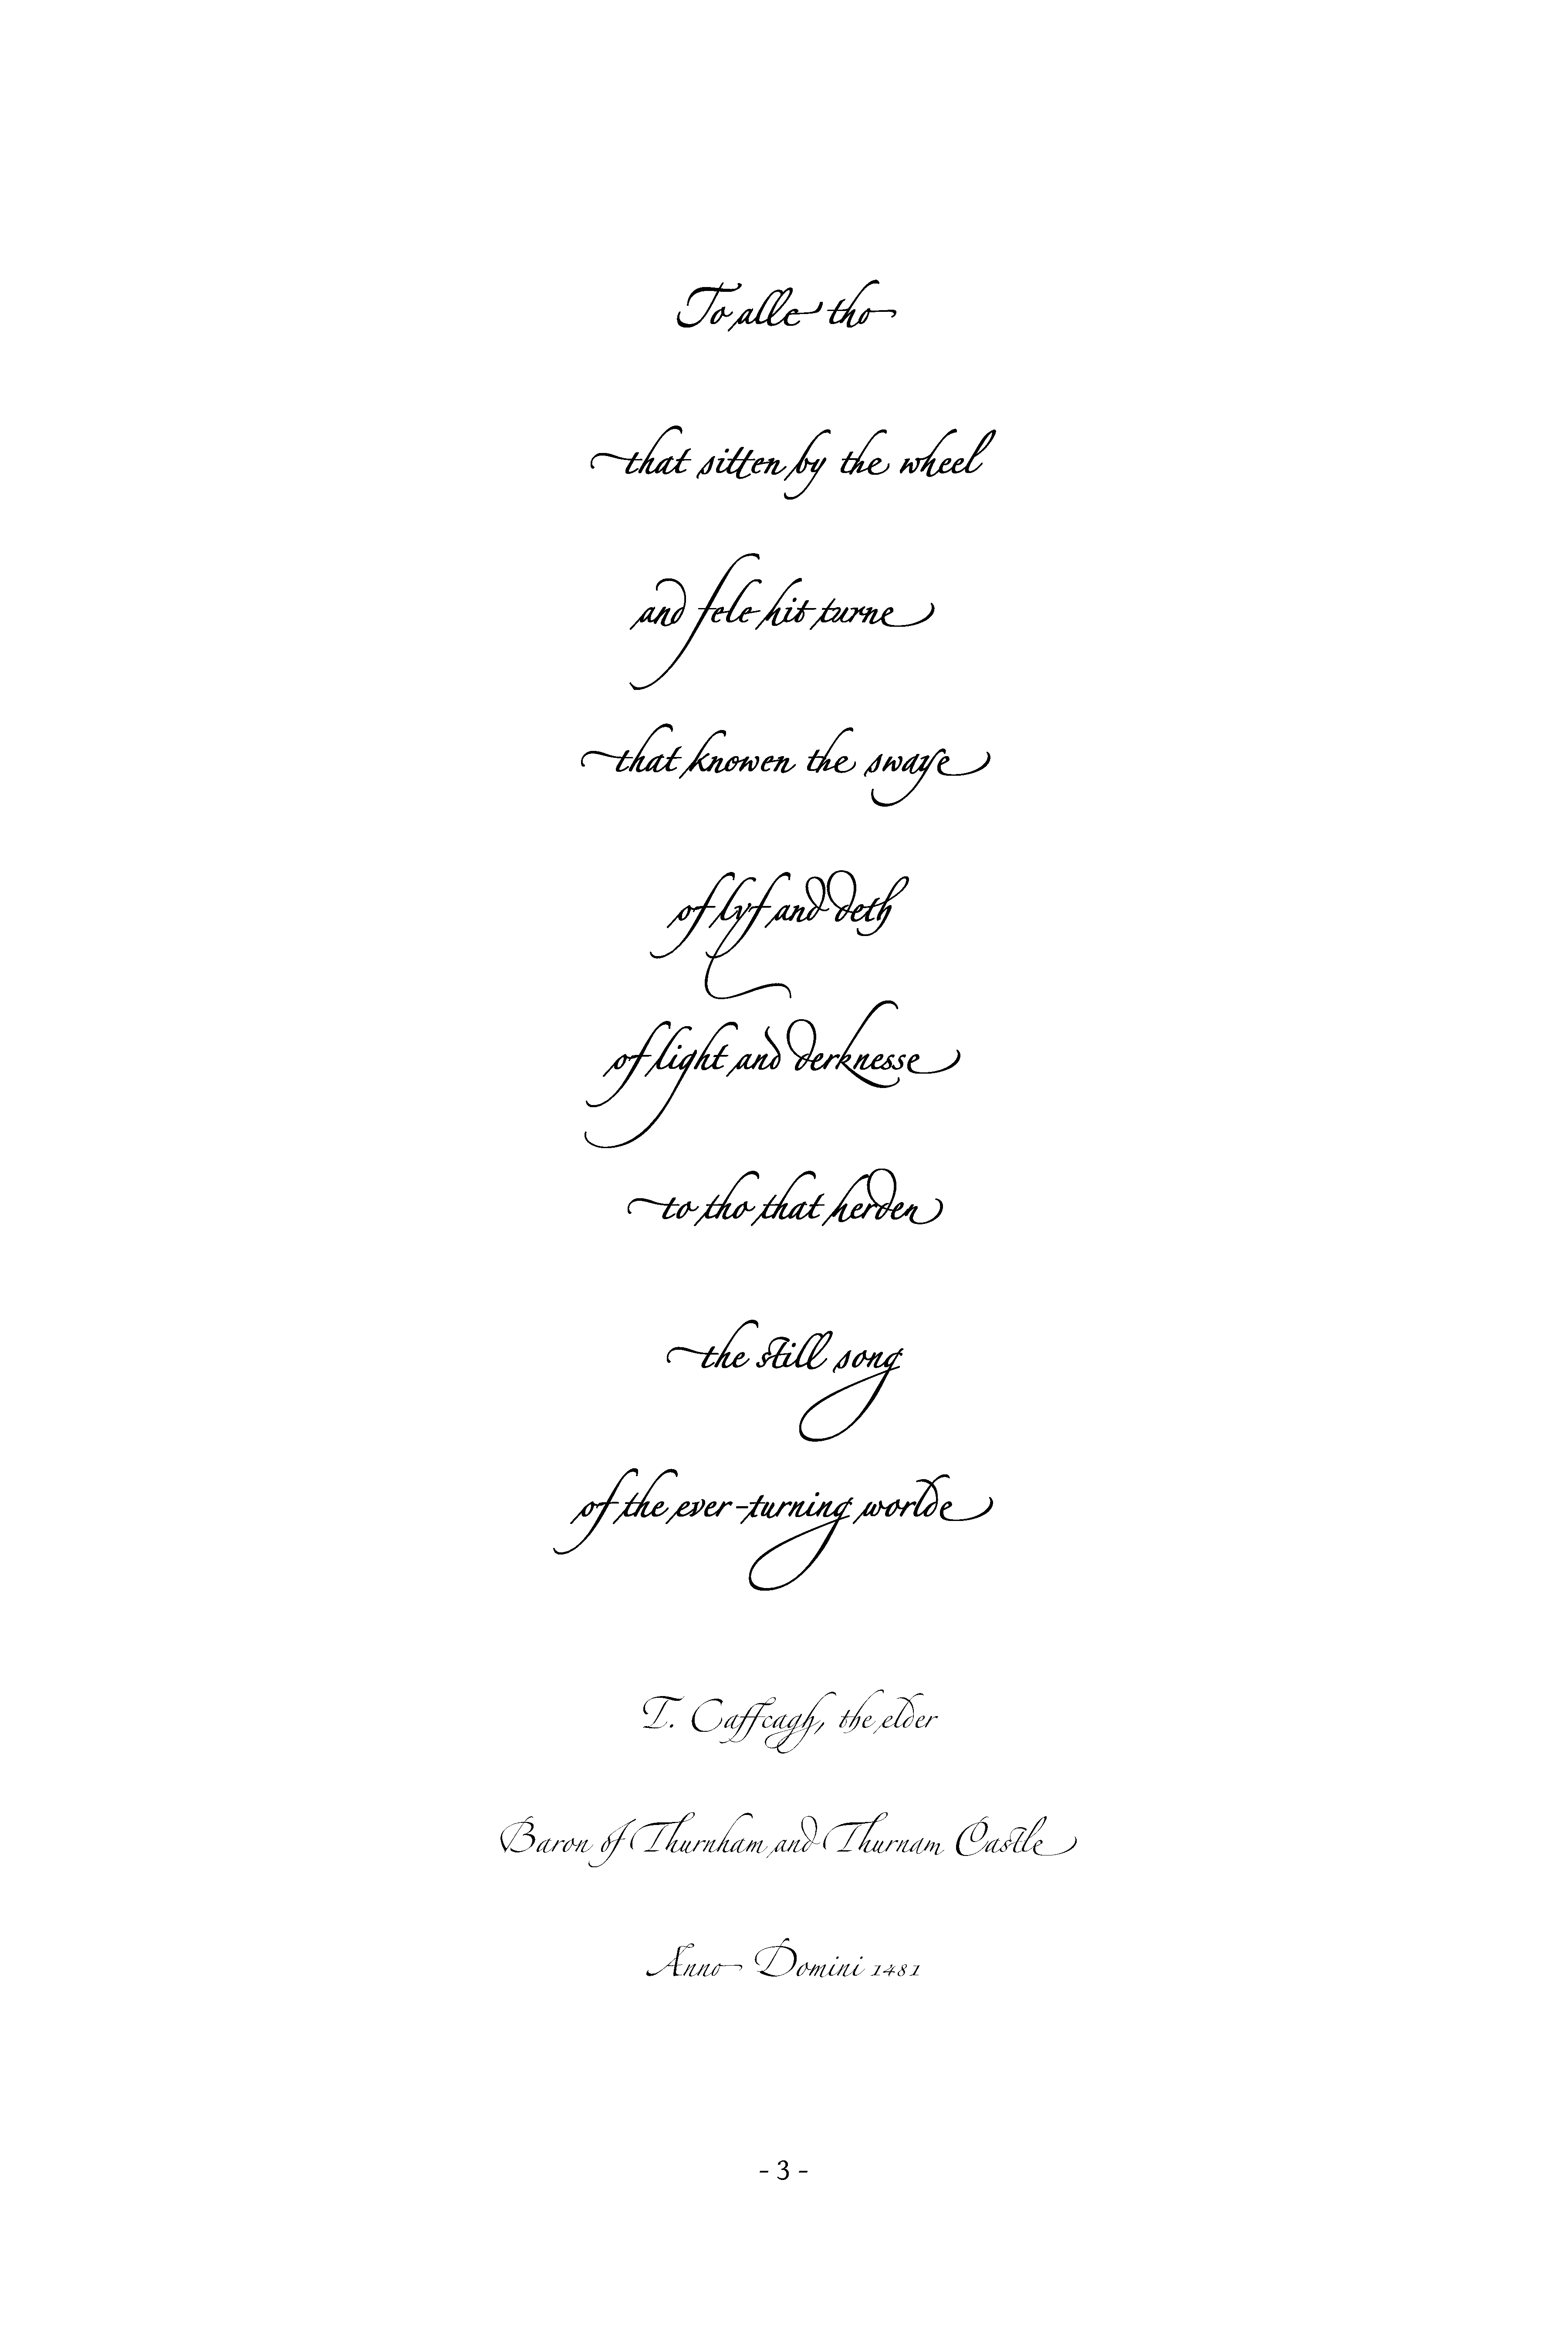 To alle tho
that sitten by the wheel
and fele hit turne
that knowen the swaye
of lyf and deth
of light and derknesse
to tho that herden
the still song
of the ever-turning worlde
T. Caffcagh, the elder
Baron of Thurnham and Thurnam Castle
Anno Domini 1481
- 3 -